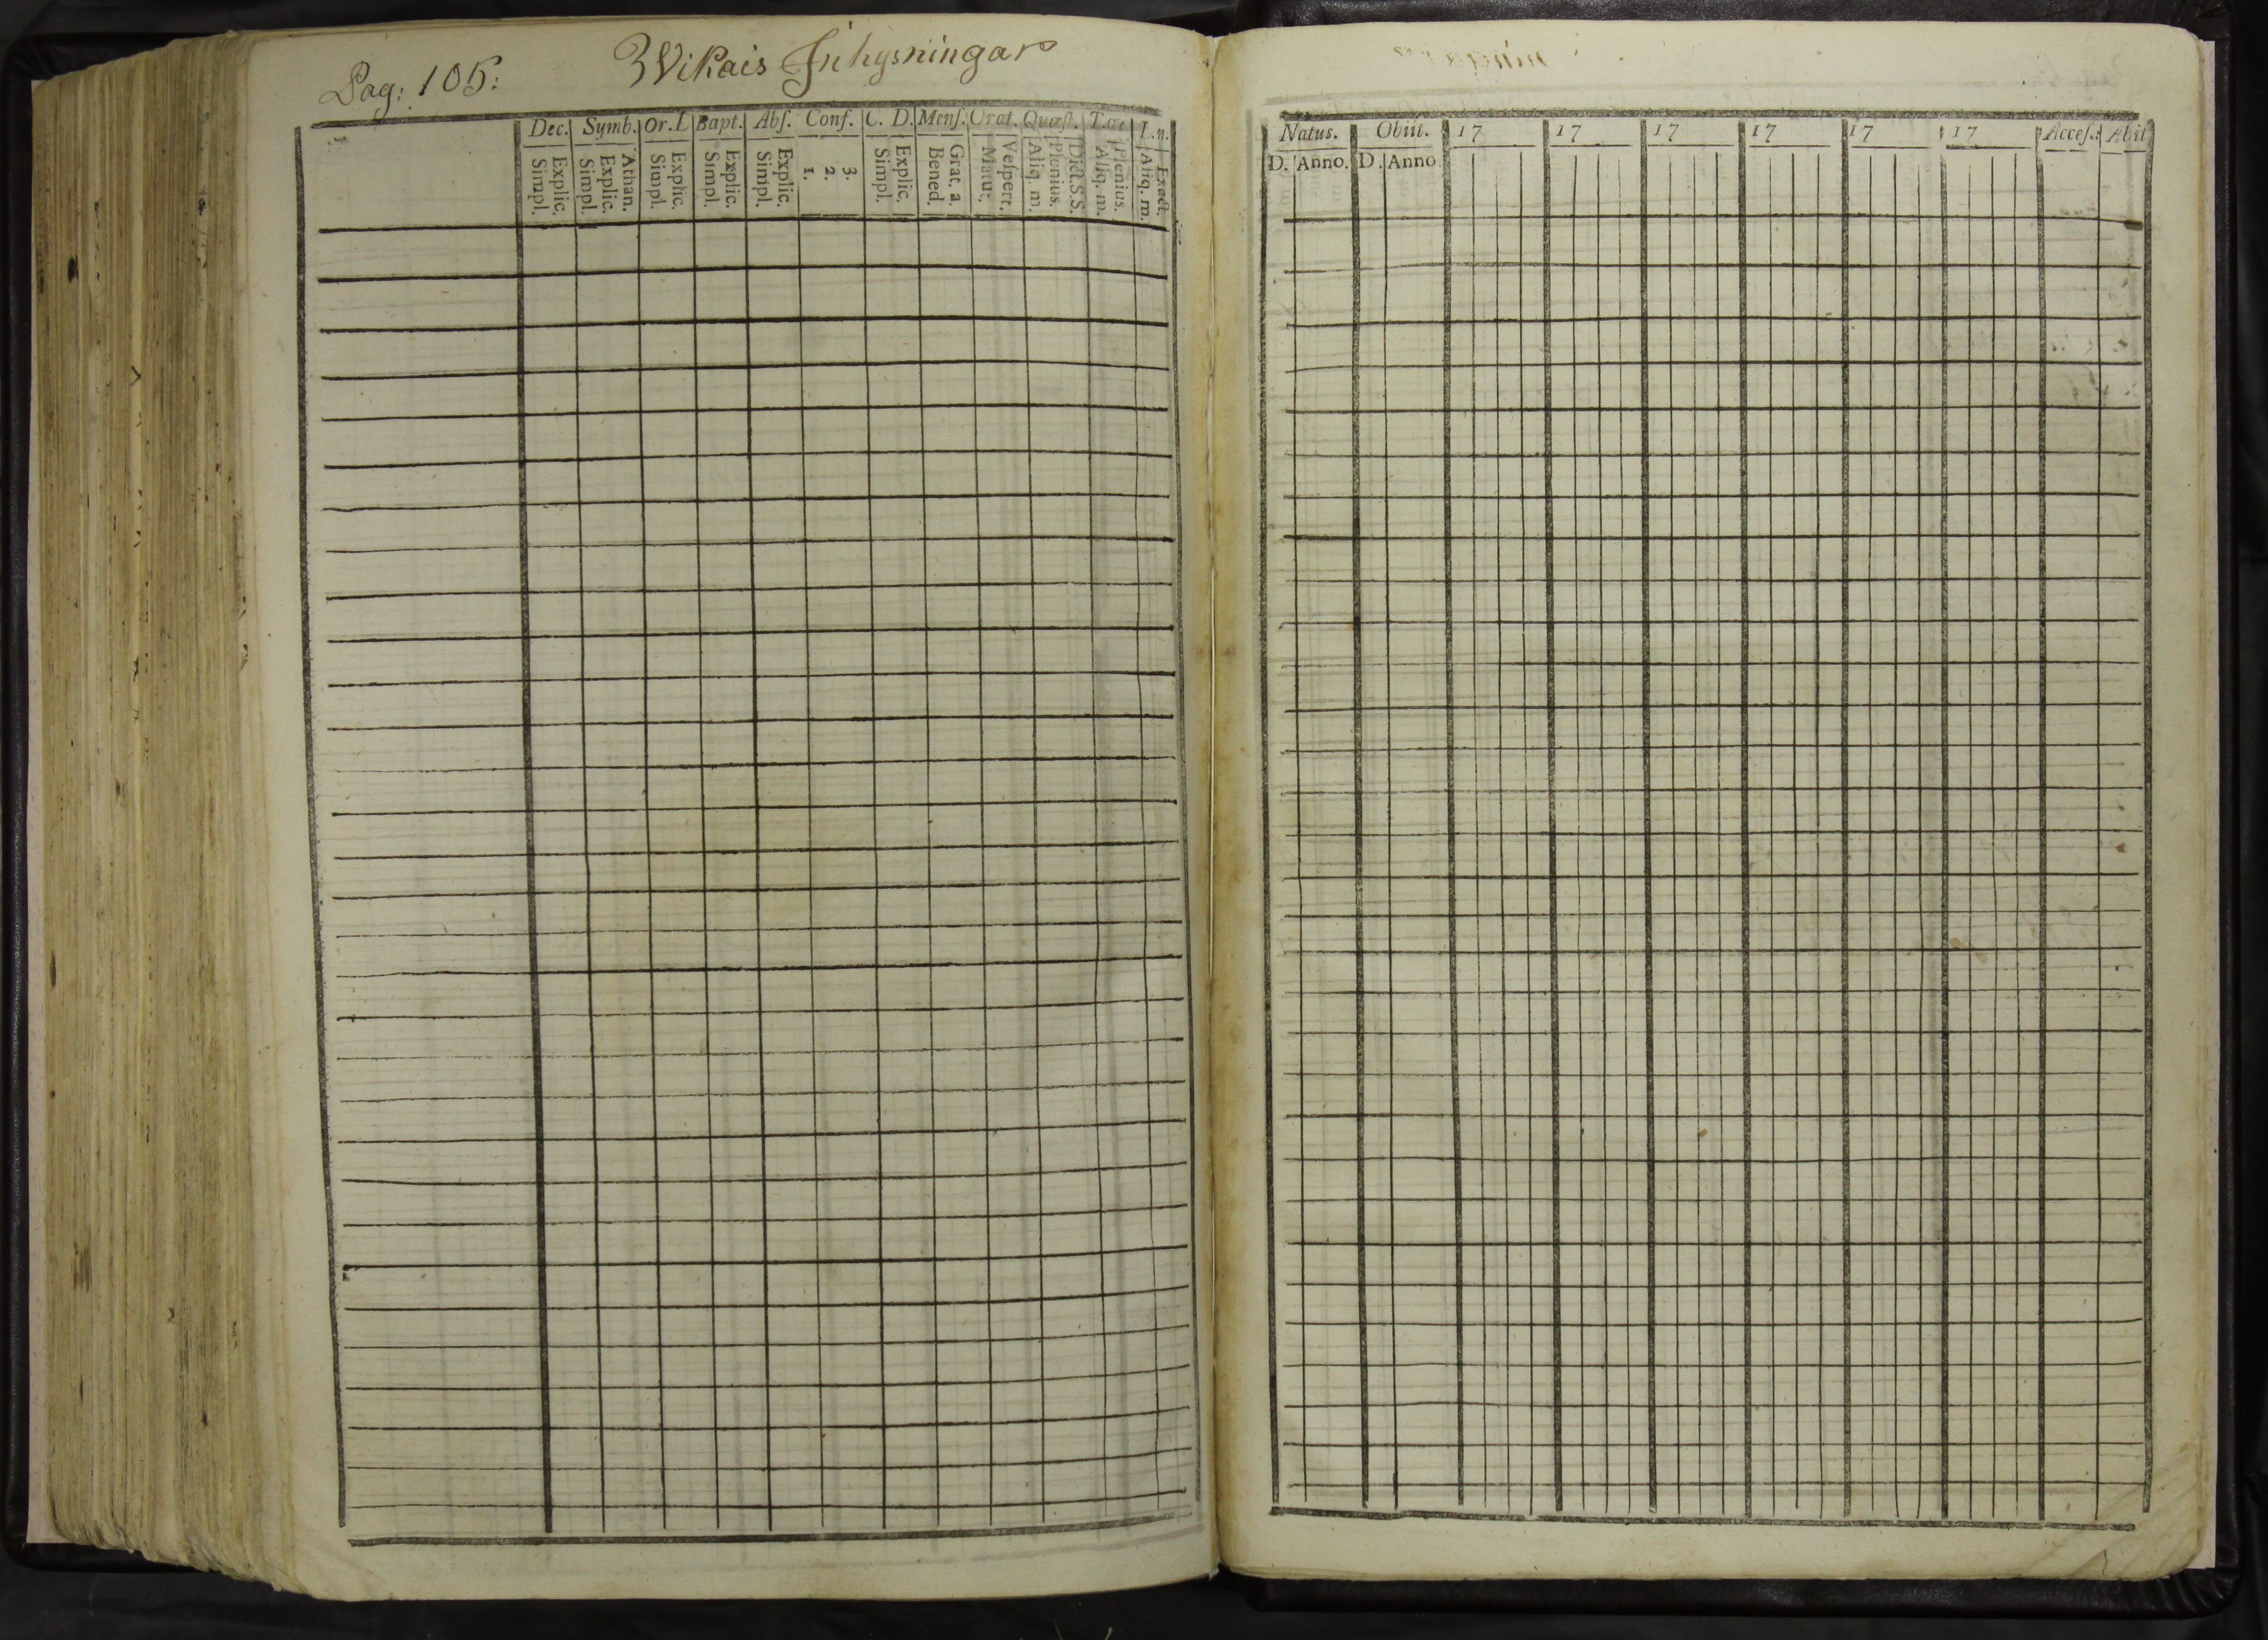 Pag: 105:
Wikais Inhysningar
Dec. Symb. Or. L Bapt. Abſ. Conf. C. D. Menſ. Orat. Quæſt. T. I. n.
Simpl. Explic. Simpl. Explic. Athan. Simpl. Explic. Simpl. Explic. Simpl. Explic. 1. 2. 3. Simpl. Explic. Bened. Grat. a. Matut. Veſpert. Aliq. m. Plenius. Dict. S. S. Aliq. m. Plenius. Aliq. m. Exact.
Natus. Obiit. 17 17 17 17 17 17 Acceſ. Abit
D. Anno. D. Anno.